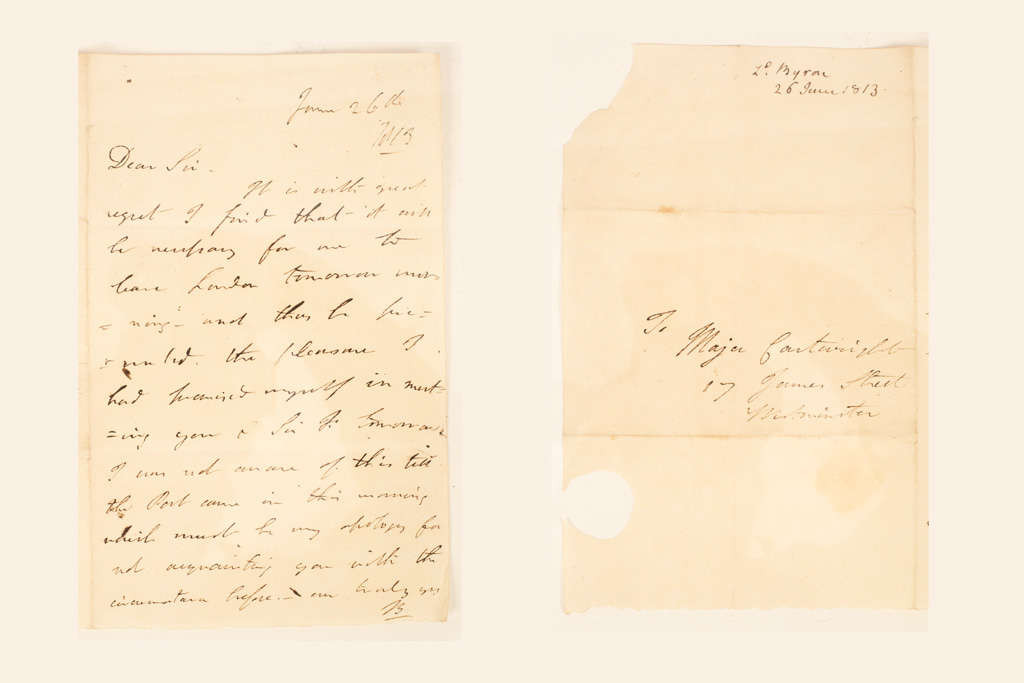 June 26th
1813
Dear Sir -
It is with great
regret I find that it will
be necessary for me to
leave London tomorrow mor-
= ning - and thus be pre=
= vented the pleasure I
had promised myself in meet-
=ing you & Sir F. tomorrow
I was not aware of this till
the Post came in this morning
which must be my apology for
not acquainting you with the
circumstance before. - truly yrs
B
Ld. Byron
26 June 1813.
To
Major Cartwright
17 James Street
Westminster